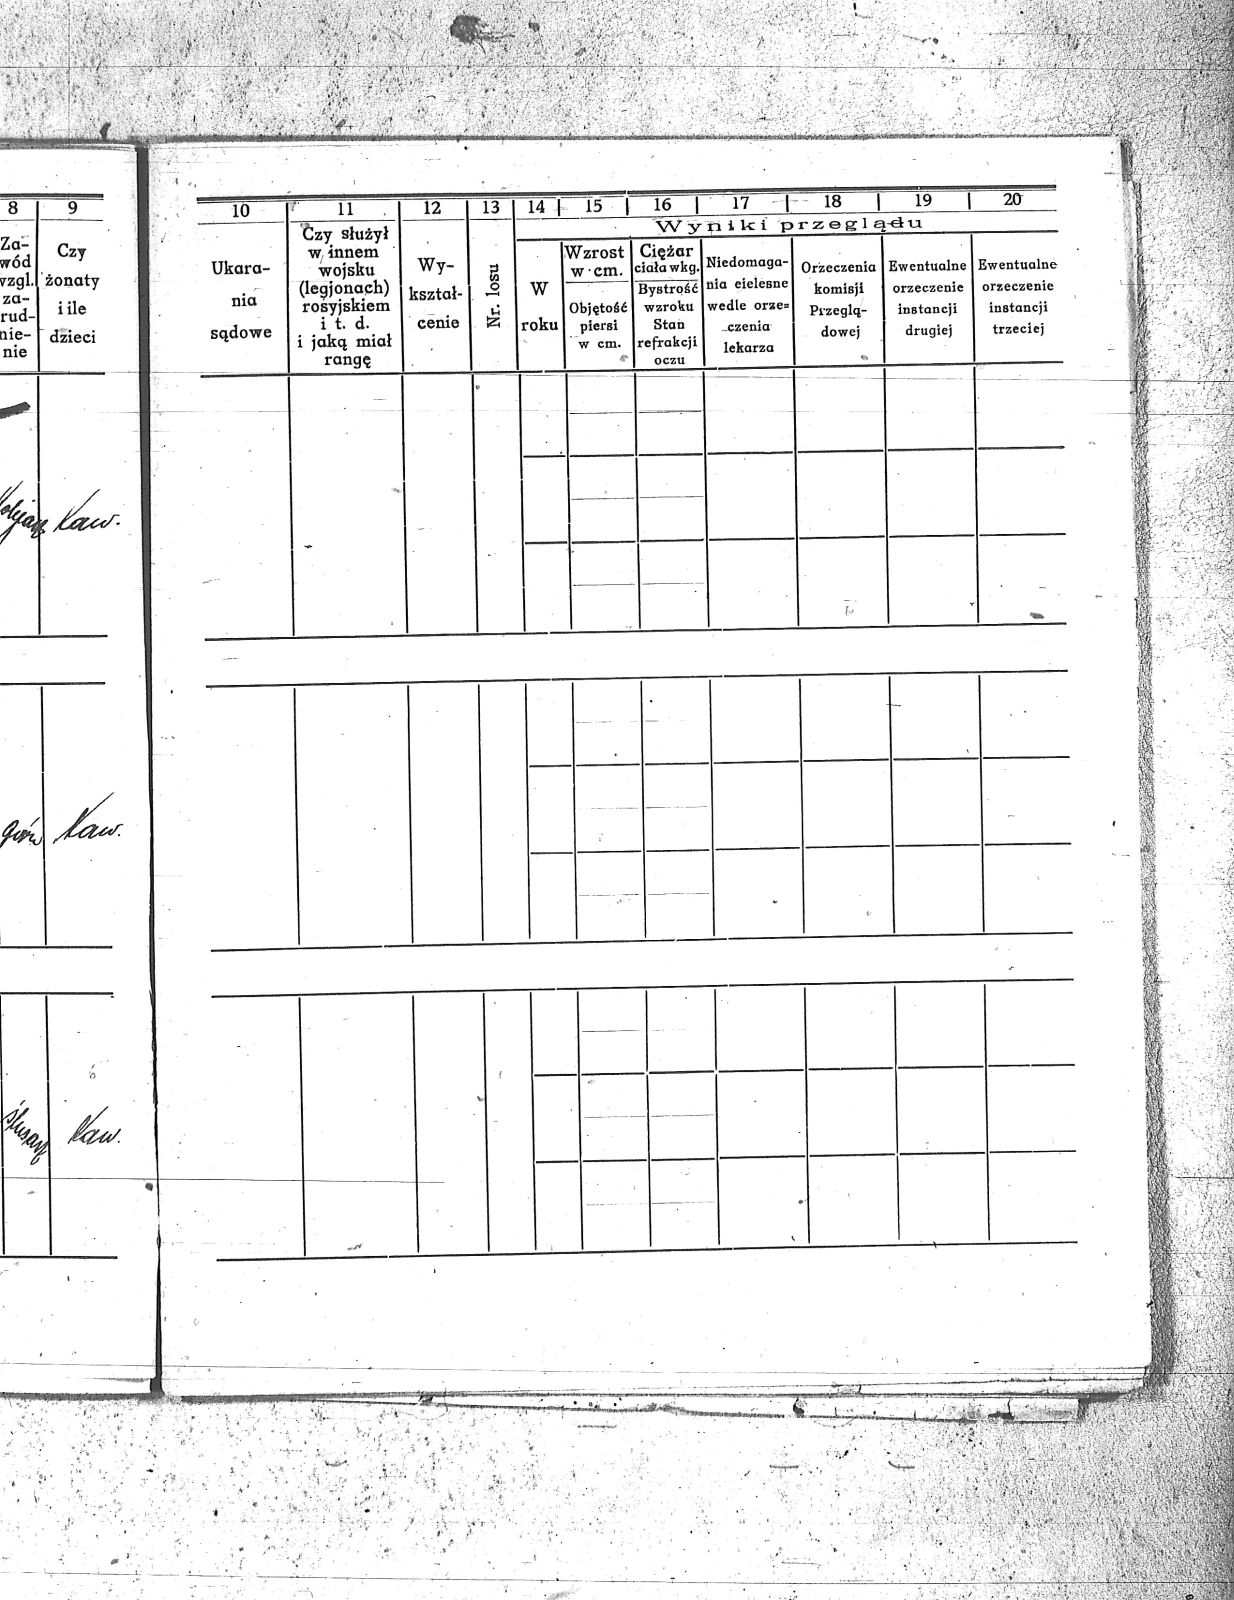 8 9
Za-
wód
wzgl.
za-
rud-
nie-
nie
Czy
żonaty
i ile
dzieci
Kaw.
Kaw.
ślusarz Kaw.
10 11 12 13 14 15 16 17 18 19 20
Wyniki przeglądu
Ukara-
nia
sądowe
Czy służył
w innem
wojsku
(legjonach)
rosyjskiem
i t. d.
i jaką miał
rangę
Wy-
kształ-
cenie
Nr. losu
W
roku
Wzrost
w cm.
Objętość
piersi
w cm.
Ciężar
ciała w kg.
Bystrość
wzroku
Stan
refrakcji
oczu
Niedomaga-
nia cielesne
wedle orze-
czenia
lekarza
Orzeczenia
komisji
Przeglą-
dowej
Ewentualne
orzeczenie
instancji
drugiej
Ewentualne
orzeczenie
instancji
trzeciej